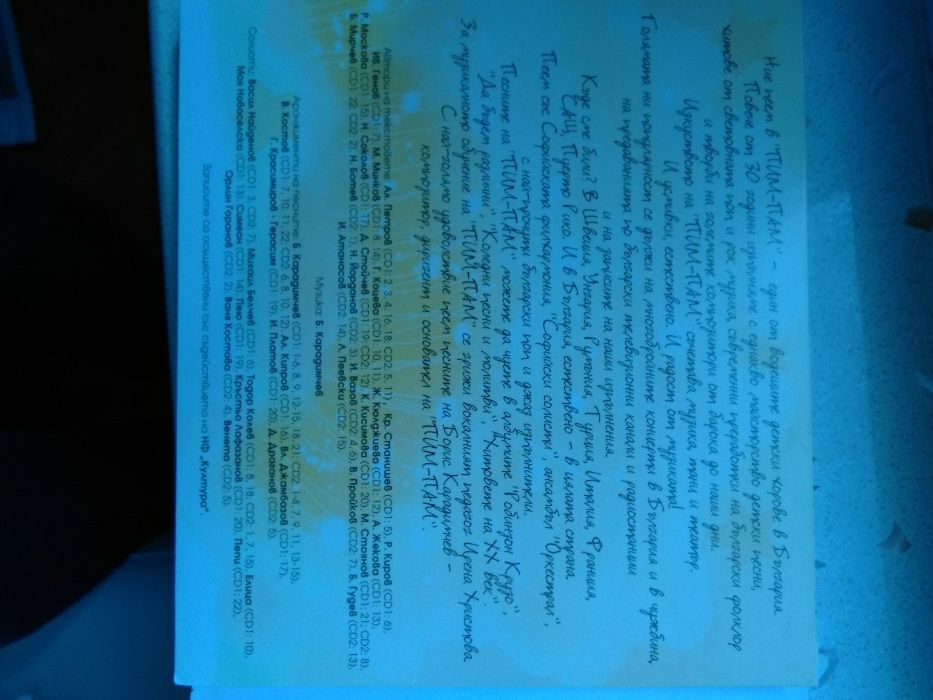 Ние пеем в "ПИМ-ПАМ" - един от водещите детски хорове в България.
Повече от 30 години изпълняваме с еднакво майсторство детски песни,
хитове от световната поп и рок музика, съвременни преработки на български фолклор
и творби на големите композитори от барока до наши дни.
Изкуството на "ПИМ-ПАМ" съчетава музика, танц и театър.
И усмивки, естествено. И радост от музиката!
Голямата ни популярност се дължи на многобройните концерти в България и в чужбина,
на предаванията по български телевизионни канали и радиостанции
и на записите на наши изпълнения.
Къде сме били? В Швеция, Унгария, Румъния, Турция, Италия, Франция,
САЩ, Пуерто Рико. И в България, естествено - в цялата страна.
Пеем със Софийската филхармония, "Софийски солисти", ансамбъл "Оркестрал",
с най-добрите български поп и джаз изпълнители.
Песните на "ПИМ-ПАМ" можете да чуете в албумите "Робинзон Крузо",
"Да бъдем различни", "Коледни песни и молитви", "Хитовете на XX век".
За музикалното обучение на "ПИМ-ПАМ" се грижи вокалният педагог Ирена Христова
С най-голямо удоволствие пеем песните на Борис Карадимчев -
композитор, диригент и основател на "ПИМ-ПАМ".
Автори на текстовете: Ал. Петров (CD1: 2, 3, 4, 16, 18. CD2: 5, 11), Кр. Станишев (CD1: 5), Р. Киров (CD1: 6),
Ив. Генов (CD1: 7), М. Минков (CD1: 8, 14), Г. Коцева (CD1: 10, 11), Ж. Кюлджиева (CD1: 12), А. Жекова (CD1: 13),
Р. Москова (CD1: 15), Н. Соколов (CD1: 17), Д. Стойчев (CD1: 19; CD2: 12), К. Кисимова (CD1: 20), М. Стоянов (CD1: 21; CD2: 8),
Б. Мирчев (CD1: 22; CD2: 2), Н. Ботев (CD2: 1), Н. Йорданов (CD2: 3), И. Вазов (CD2: 4, 6), В. Пройков (CD2: 7), Б. Гудев (CD2: 13),
И. Атанасов (CD2: 14), Л. Пеевски (CD2: 15).
Музика: Б. Карадимчев
Аранжименти на песните: Б. Карадимчев (CD1: 1-6, 8, 9, 12-15, 18, 21; CD2: 1-4, 7, 9, 11, 13-15),
В. Костов (CD1: 7, 10, 11, 22; CD2: 6, 8, 10, 12), Ал. Кипров (CD1: 16), Вл. Джамбазов (CD1: 17),
Г. Красимиров - Герасим (CD1: 19), И. Платов (CD1: 20), Д. Драганов (CD2: 5).
Солисти: Васил Найденов (CD1: 3, CD2: 7), Михаил Белчев (CD1: 6), Тодор Колев (CD1: 8, 18, CD2: 1, 7, 15), Елица (CD1: 10),
Мая Новоселска (CD1: 13), Симеон (CD1: 14), Пею (CD1: 19), Кръстьо Лафазанов (CD1: 20), Пепи (CD1: 22),
Орлин Горанов (CD2: 2), Ваня Костова (CD2: 4), Венета (CD2: 5).
Записите са осъществени със съдействието на НФ „Култура".